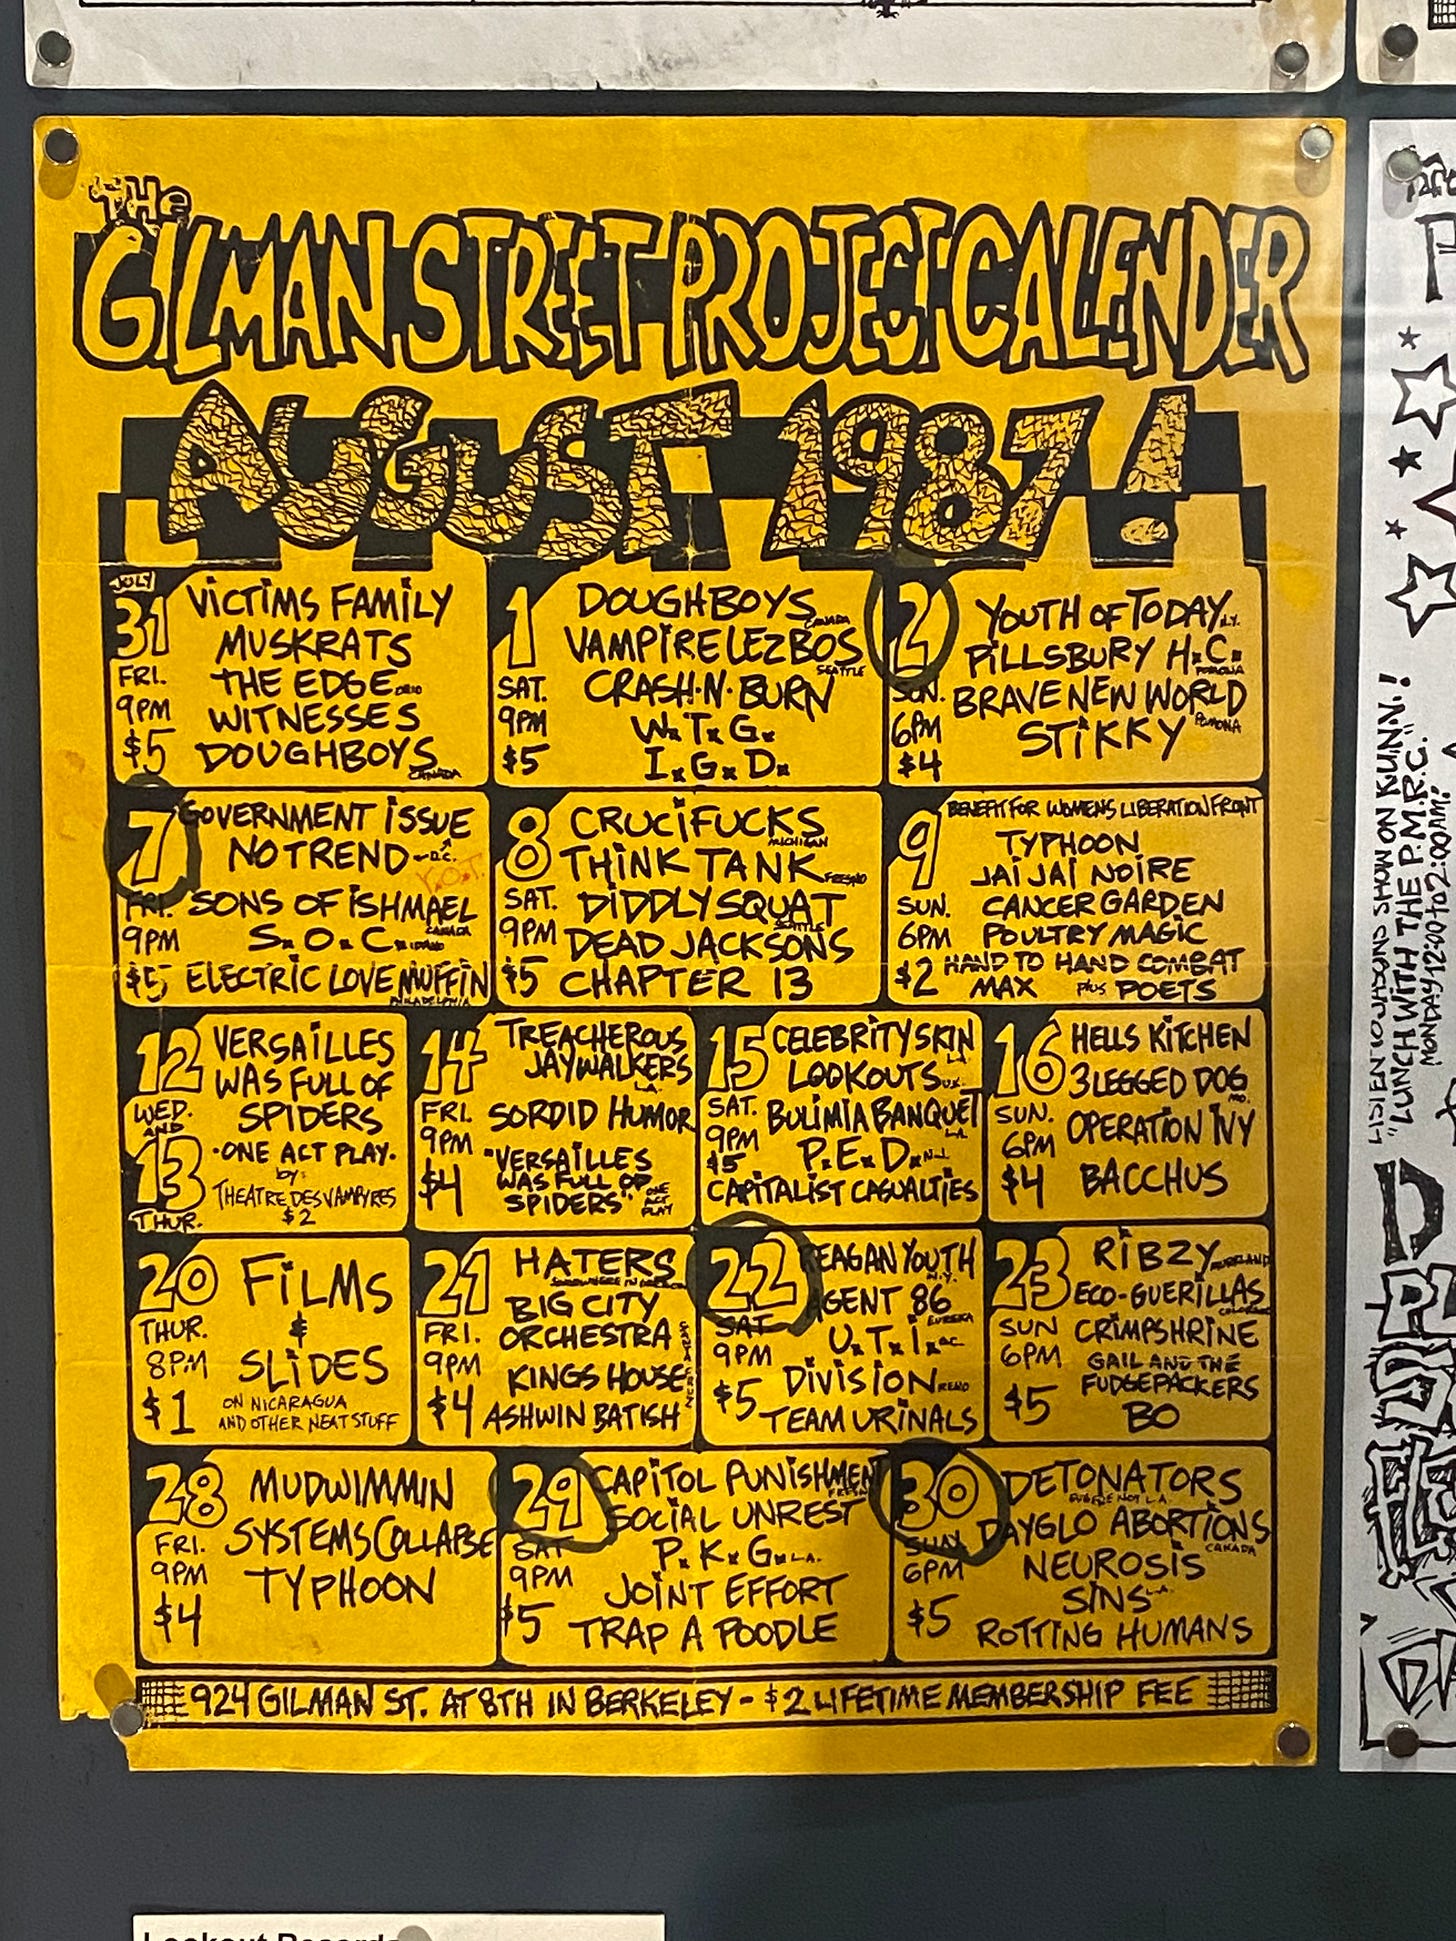 THE
GILMAN STREET PROJECT CALENDER
AUGUST 1987!
JULY
31
FRI.
9PM
$5
VICTIMS FAMILY
MUSKRATS
THE EDGE OHIO
WITNESSES
DOUGHBOYS
CANADA
1
SAT.
9PM
$5
DOUGHBOYS
CANADA
VAMPIRE LEZBOS
SEATTLE
CRASH·N·BURN
W.T.G.
I.G.D.
2
SUN.
6PM
$4
YOUTH OF TODAY N.Y.
PILLSBURY H.C.
POMONA
BRAVE NEW WORLD
POMONA
STIKKY
7
FRI.
9PM
$5
GOVERNMENT ISSUE
NO TREND D.C.
Y.O.T.
SONS OF ISHMAEL
CANADA
S.O.C. IDAHO
ELECTRIC LOVE MUFFIN
PHILADELPHIA
8
SAT.
9PM
$5
CRUCIFUCKS
MICHIGAN
THINK TANK FRESNO
DIDDLY SQUAT
SEATTLE
DEAD JACKSONS
CHAPTER 13
9
SUN.
6PM
$2
BENEFIT FOR WOMENS LIBERATION FRONT
TYPHOON
JAI JAI NOIRE
CANCER GARDEN
POULTRY MAGIC
HAND TO HAND COMBAT
MAX plus POETS
12
WED.
AND
13
THUR.
VERSAILLES
WAS FULL OF
SPIDERS
·ONE ACT PLAY·
by:
THEATRE DES VAMPYRES
$2
14
FRI.
9PM
$4
TREACHEROUS
JAYWALKERS
L.A.
SORDID HUMOR
"VERSAILLES
WAS FULL OF
SPIDERS" ONE ACT PLAY
15
SAT.
9PM
$5
CELEBRITY SKIN
L.A.
LOOKOUTS U.K.
BULIMIA BANQUET
L.A.
P.E.D. N.J.
CAPITALIST CASUALTIES
16
SUN.
6PM
$4
HELLS KITCHEN
3 LEGGED DOG
MO.
OPERATION IVY
BACCHUS
20
THUR.
8PM
$1
FILMS
&
SLIDES
ON NICARAGUA
AND OTHER NEAT STUFF
21
FRI.
9PM
$4
HATERS
BIG CITY
ORCHESTRA
KINGS HOUSE
SANTA CRUZ
ASHWIN BATISH
22
SAT
9PM
$5
REAGAN YOUTH
N.Y.
AGENT 86
EUREKA
U.T.I. D.C.
DIVISION RENO
TEAM URINALS
23
SUN
6PM
$5
RIBZY
ECO-GUERILLAS
CRIMPSHRINE
GAIL AND THE
FUDGEPACKERS
BO
28
FRI.
9PM
$4
MUDWIMMIN
SYSTEMS COLLAPSE
TYPHOON
29
SAT
9PM
$5
CAPITOL PUNISHMENT
FRESNO
SOCIAL UNREST
P.K.G. L.A.
JOINT EFFORT
TRAP A POODLE
30
SUN
6PM
$5
DETONATORS
NOT L.A.
DAYGLO ABORTIONS
CANADA
NEUROSIS
SINS L.A.
ROTTING HUMANS
924 GILMAN ST. AT 8TH IN BERKELEY - $2 LIFETIME MEMBERSHIP FEE
LISTEN TO JASONS SHOW ON K.U.N.V.!
"LUNCH WITH THE P.M.R.C."
MONDAY/12:00 to 2:00AM!
Lookout Records